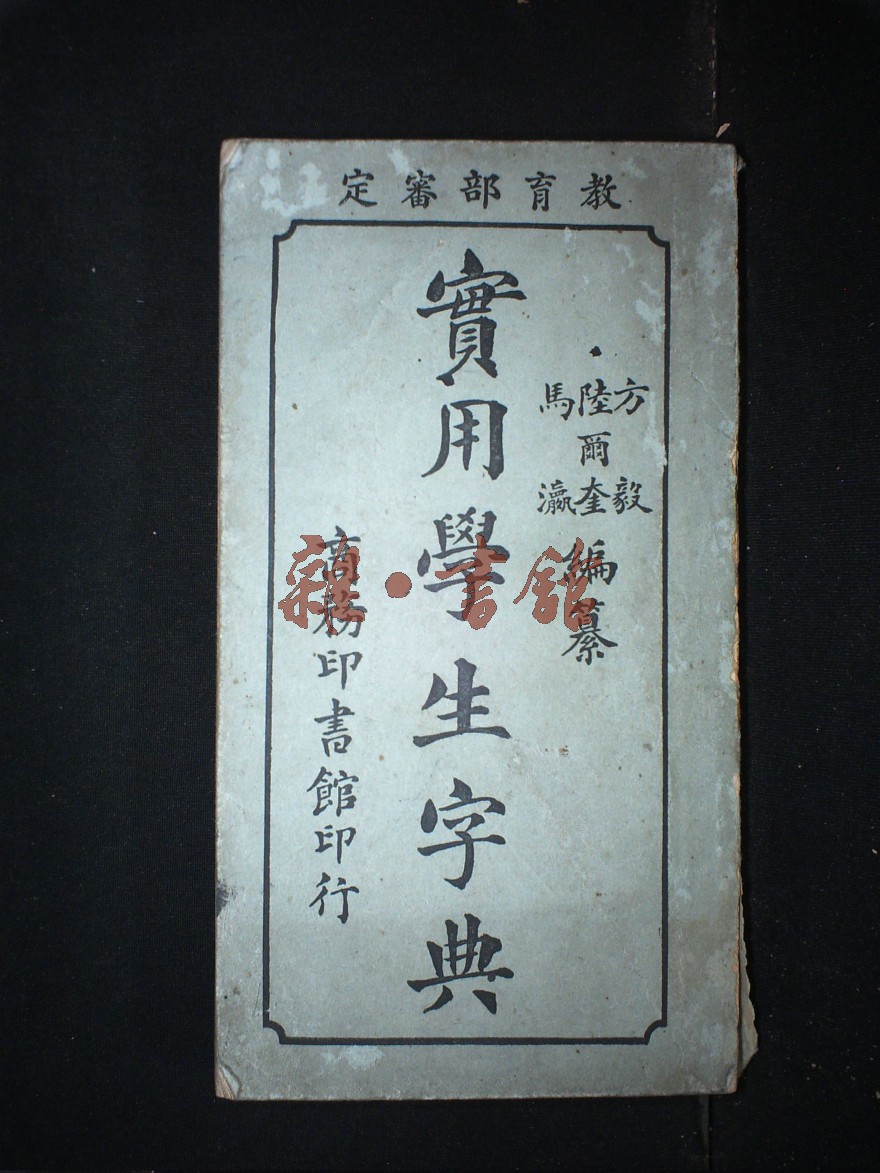 教育部審定
方毅
陸爾奎
馬瀛
編纂
實用學生字典
商務印書館印行
雜·書館